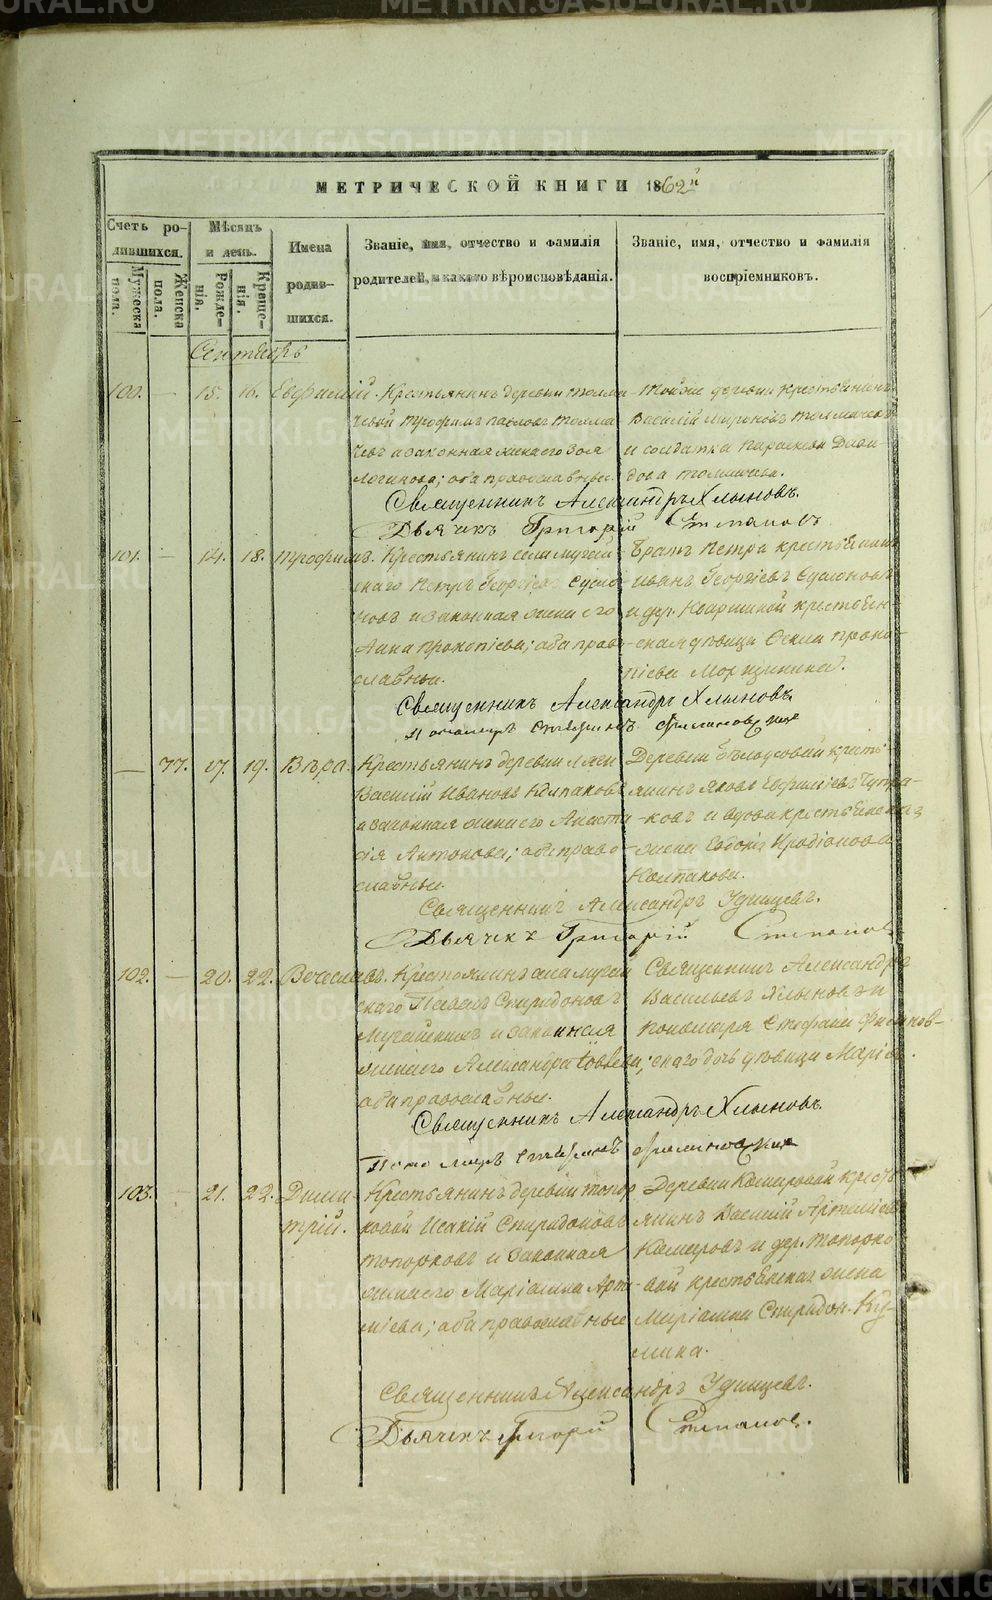 METRIKI.GASO-URAL.RU
МЕТРИЧЕСКОЙ КНИГИ 1862й
Счетъ ро-
дившихся.
Мужеска пола.
Женска пола.
Мѣсяцъ
и день.
Рожде-
нія.
Креще-
нія.
Имена
родив-
шихся.
Званіе, имя, отчество и фамилія
родителей, и какого вѣроисповѣданія.
Званіе, имя, отчество и фамилія
воспріемниковъ.
Сентябрь
100. — 15. 16. Евфимій. Крестьянинъ деревни Толма-
чевой Трофимъ Павловъ Толма-
чевъ и законная жена его Зоя
Логинова; оба православные.
Тойже деревни крестьянинъ
Василій Мироновъ Толмачевъ
и солдатка Параскева Дави-
дова Толмачева.
Священникъ Александръ Хлыновъ.
Дьячекъ Григорій Степановъ
101. — 14. 18. Трофимъ. Крестьянинъ села Мугай-
скаго Петръ Георгіевъ
и законная жена его
Анна Прокопіева; оба право-
славные.
Братъ Петра крестьянинъ
Иванъ Георгіевъ
и дер. крестьян-
ская дѣвица Проко-
піева
Священникъ Александръ Хлыновъ.
Пономарь Стефанъ Филиновскій
— 77. 17. 19. Вѣра. Крестьянинъ деревни
Василій Ивановъ Колпаковъ
и законная жена его Анаста-
сія Антонова; оба право-
славные.
Деревни Бѣлоусовой кресть-
янинъ Яковъ Евфиміевъ
и вдова крестьянская
жена Евдокія Иродіонова
Колпакова.
Священникъ Александръ Удинцевъ.
Дьячекъ Григорій Степановъ
102. — 20. 22. Вечеславъ. Крестьянинъ села Мугай-
скаго Павелъ Спиридоновъ
и законная
жена его Александра
оба православные.
Священникъ Александръ
Васильевъ Хлыновъ и
Пономаря Стефана Филинов-
скаго дочь дѣвица Марія.
Священникъ Александръ Хлыновъ.
Пономарь Стефанъ Филиновскій
103. — 21. 22. Дими-
трій.
Крестьянинъ деревни Топор-
ковой Исакій Спиридоновъ
Топорковъ и законная
жена его Маріамна Арте-
міева; оба православные
Деревни Комаровой кресть-
янинъ Василій Артеміевъ
Комаровъ и дер. Топорко-
вой крестьянская жена
Маріамна Спиридон. Ку-
мина.
Священникъ Александръ Удинцевъ.
Дьячекъ Григорій Степановъ.